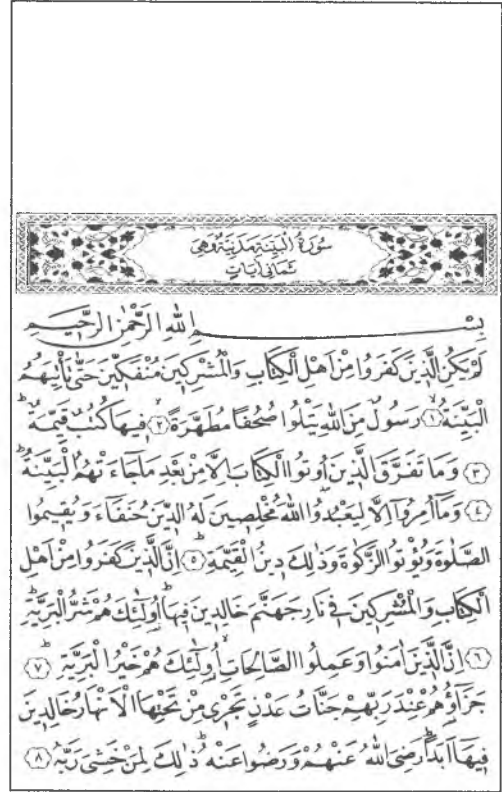 سُورَةُ الْبَيِّنَةِ مَدَنِيَّةٌ وَهِيَ
ثَمَانِي اٰيَاتٍ
بِسْمِ اللّٰهِ الرَّحْمٰنِ الرَّح۪يمِ
لَمْ يَكُنِ الَّذ۪ينَ كَفَرُوا مِنْ اَهْلِ الْكِتَابِ وَالْمُشْرِك۪ينَ مُنْفَكّ۪ينَ حَتّٰى تَأْتِيَهُمُ
الْبَيِّنَةُۙ ﴿١﴾ رَسُولٌ مِنَ اللّٰهِ يَتْلُوا صُحُفًا مُطَهَّرَةًۙ ﴿٢﴾ ف۪يهَا كُتُبٌ قَيِّمَةٌۜ
﴿٣﴾ وَمَا تَفَرَّقَ الَّذ۪ينَ اُو۫تُوا الْكِتَابَ اِلَّا مِنْ بَعْدِ مَا جَٓاءَتْهُمُ الْبَيِّنَةُۜ
﴿٤﴾ وَمَٓا اُمِرُٓوا اِلَّا لِيَعْبُدُوا اللّٰهَ مُخْلِص۪ينَ لَهُ الدّ۪ينَ حُنَفَٓاءَ وَيُق۪يمُوا
الصَّلٰوةَ وَيُؤْتُوا الزَّكٰوةَ وَذٰلِكَ د۪ينُ الْقَيِّمَةِۜ ﴿٥﴾ اِنَّ الَّذ۪ينَ كَفَرُوا مِنْ اَهْلِ
الْكِتَابِ وَالْمُشْرِك۪ينَ ف۪ي نَارِ جَهَنَّمَ خَالِد۪ينَ ف۪يهَاۜ اُو۬لٰٓئِكَ هُمْ شَرُّ الْبَرِيَّةِۜ
﴿٦﴾ اِنَّ الَّذ۪ينَ اٰمَنُوا وَعَمِلُوا الصَّالِحَاتِۙ اُو۬لٰٓئِكَ هُمْ خَيْرُ الْبَرِيَّةِۜ ﴿٧﴾
جَزَٓاؤُ۬هُمْ عِنْدَ رَبِّهِمْ جَنَّاتُ عَدْنٍ تَجْر۪ي مِنْ تَحْتِهَا الْاَنْهَارُ خَالِد۪ينَ
ف۪يهَٓا اَبَدًاۜ رَضِيَ اللّٰهُ عَنْهُمْ وَرَضُوا عَنْهُۜ ذٰلِكَ لِمَنْ خَشِيَ رَبَّهُ ﴿٨﴾